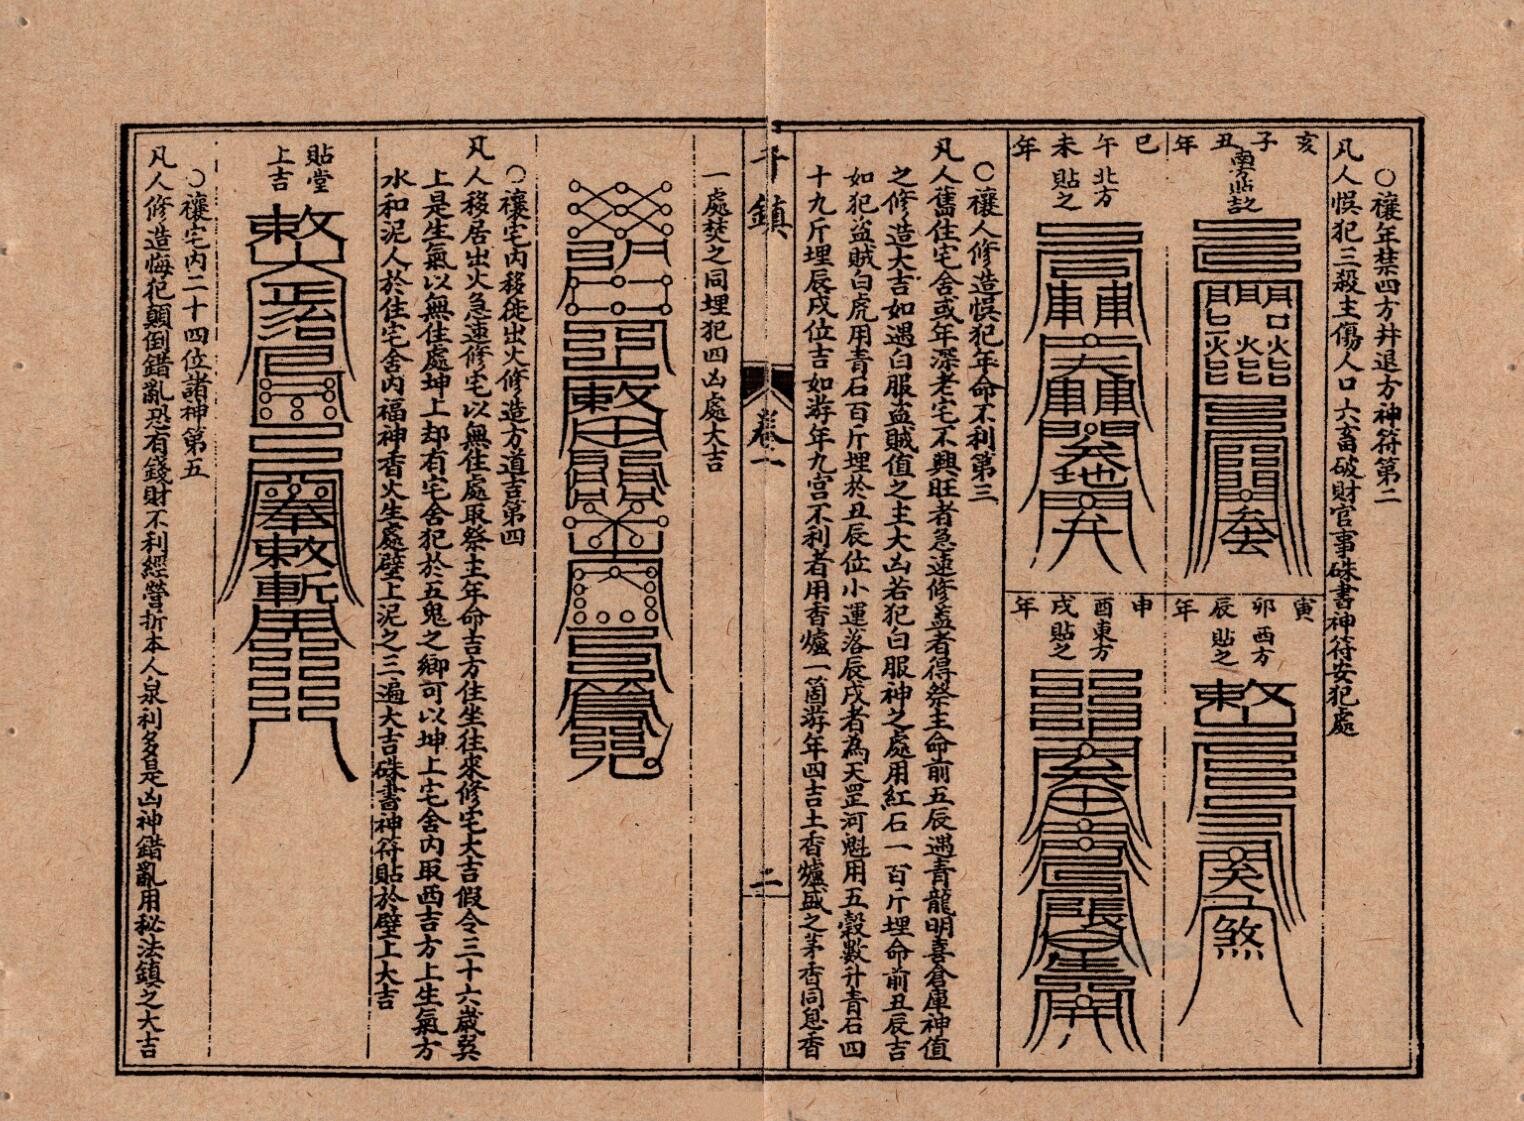 ○禳年禁四方井退方神符第二
凡人悞犯三殺主傷人口六畜破財官事硃書神符安犯處
亥子丑年
南方貼之
巳午未年
北方貼之
寅卯辰年
西方貼之
申酉戌年
東方貼之
○禳人修造悞犯年命不利第三
凡人舊住宅舍或年深老宅不興旺者急速修蓋者得祭主命前五辰遇青龍明喜倉庫神值
之修造大吉如遇白服盗賊值之主大凶若犯白服神之處用紅石一百斤埋命前丑辰吉
如犯盗賊白虎用青石百斤埋於丑辰位小運落辰戌者為天罡河魁用五穀數升青石四
十九斤埋辰戌位吉如遊年九宮不利者用香爐一箇遊年四吉土香爐盛之茅香同息香
鎮
卷一
二
一處焚之同埋犯四凶處大吉
○禳宅內移徙出火修造方道吉第四
凡人移居出火急速修宅以無住處取祭主年命吉方住坐往來修宅大吉假令三十六歲巽
上是生氣以無住處坤上却有宅舍犯於五鬼之鄉可以坤上宅舍內取西吉方上生氣方
水和泥人於住宅舍內福神香火生處壁上泥之三遍大吉硃書神符貼於壁上大吉
貼堂上吉
○禳宅內二十四位諸神第五
凡人修造悔犯顛倒錯亂恐有錢財不利經營折本人泉利多是凶神錯亂用秘法鎮之大吉